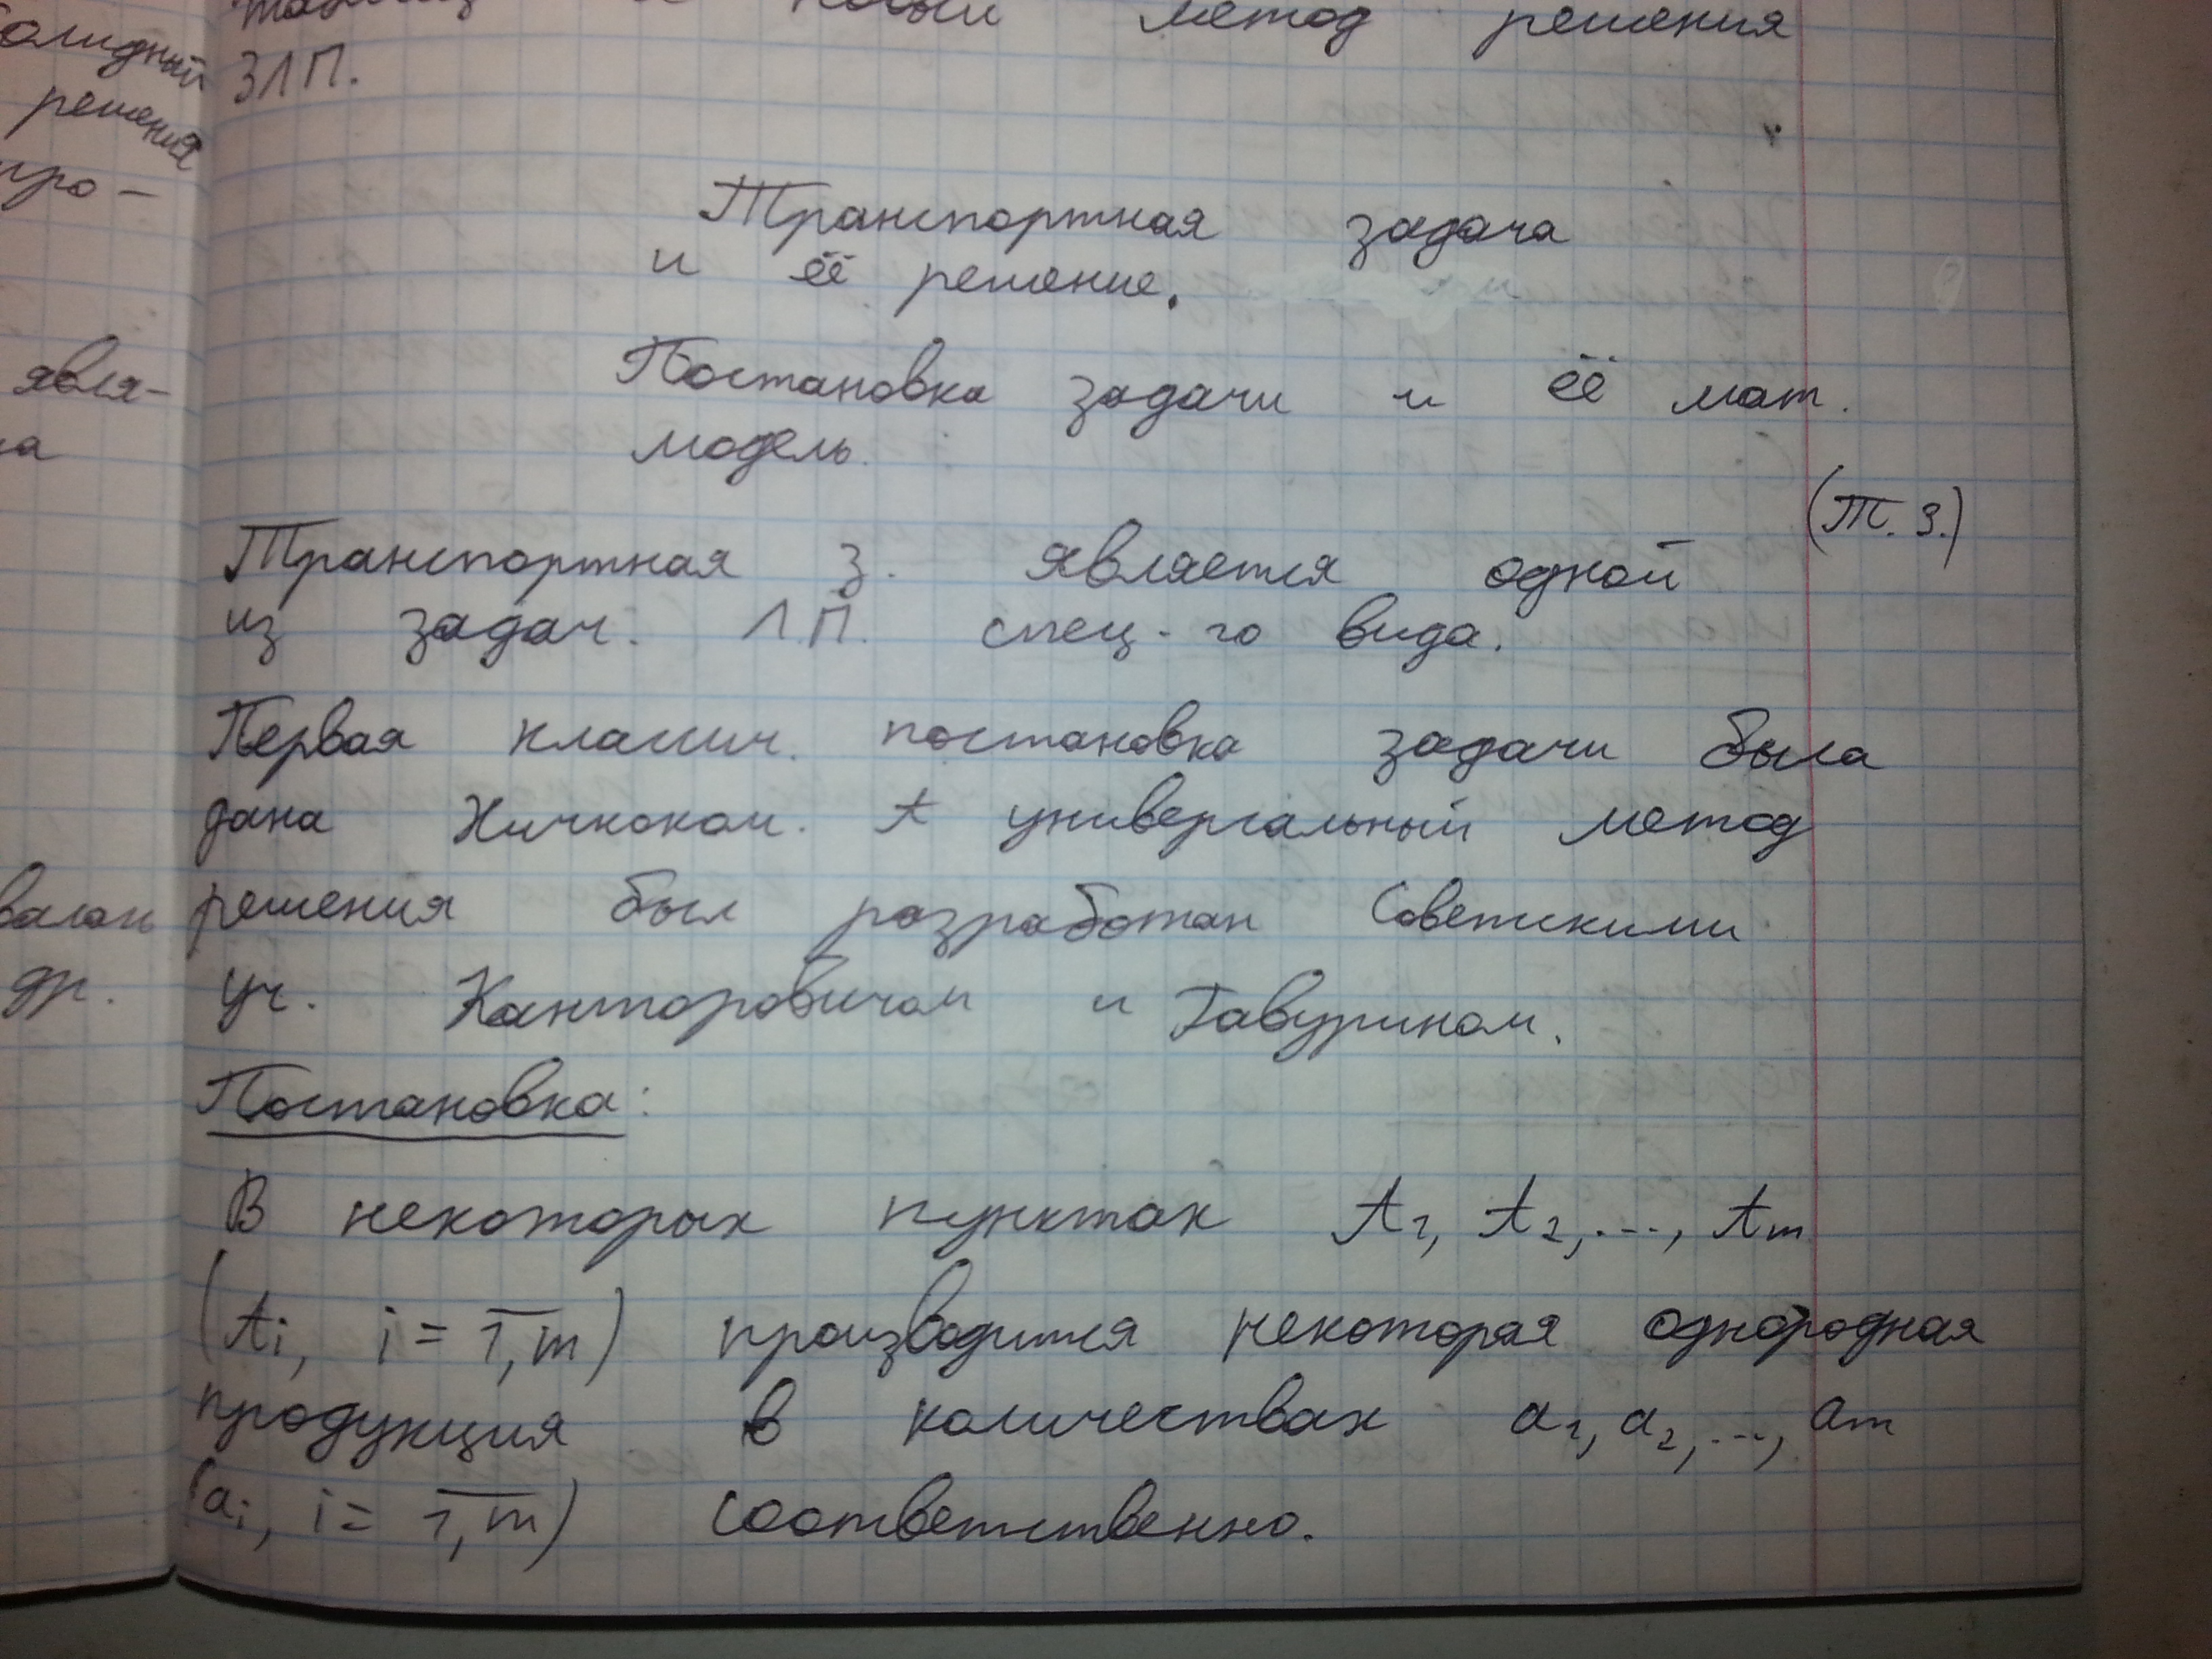 метод решения
ЗЛП.
решения
про-
явля-
др.
Транспортная задача
и её решение.
Постановка задачи и её мат.
модель.
(Т. З.)
Транспортная з. является одной
из задач. Л.П. спец-го вида.
Первая классич. постановка задачи была
дана Хичкоком. А универсальный метод
решения был разработан Советскими
уч. Канторовичом и Гавурином.
Постановка:
В некоторых пунктах A₁, A₂, ..., Aₘ
(Aᵢ, i = 1,m) производится некоторая однородная
продукция в количествах a₁, a₂, ..., aₘ
(aᵢ, i = 1,m) соответственно.